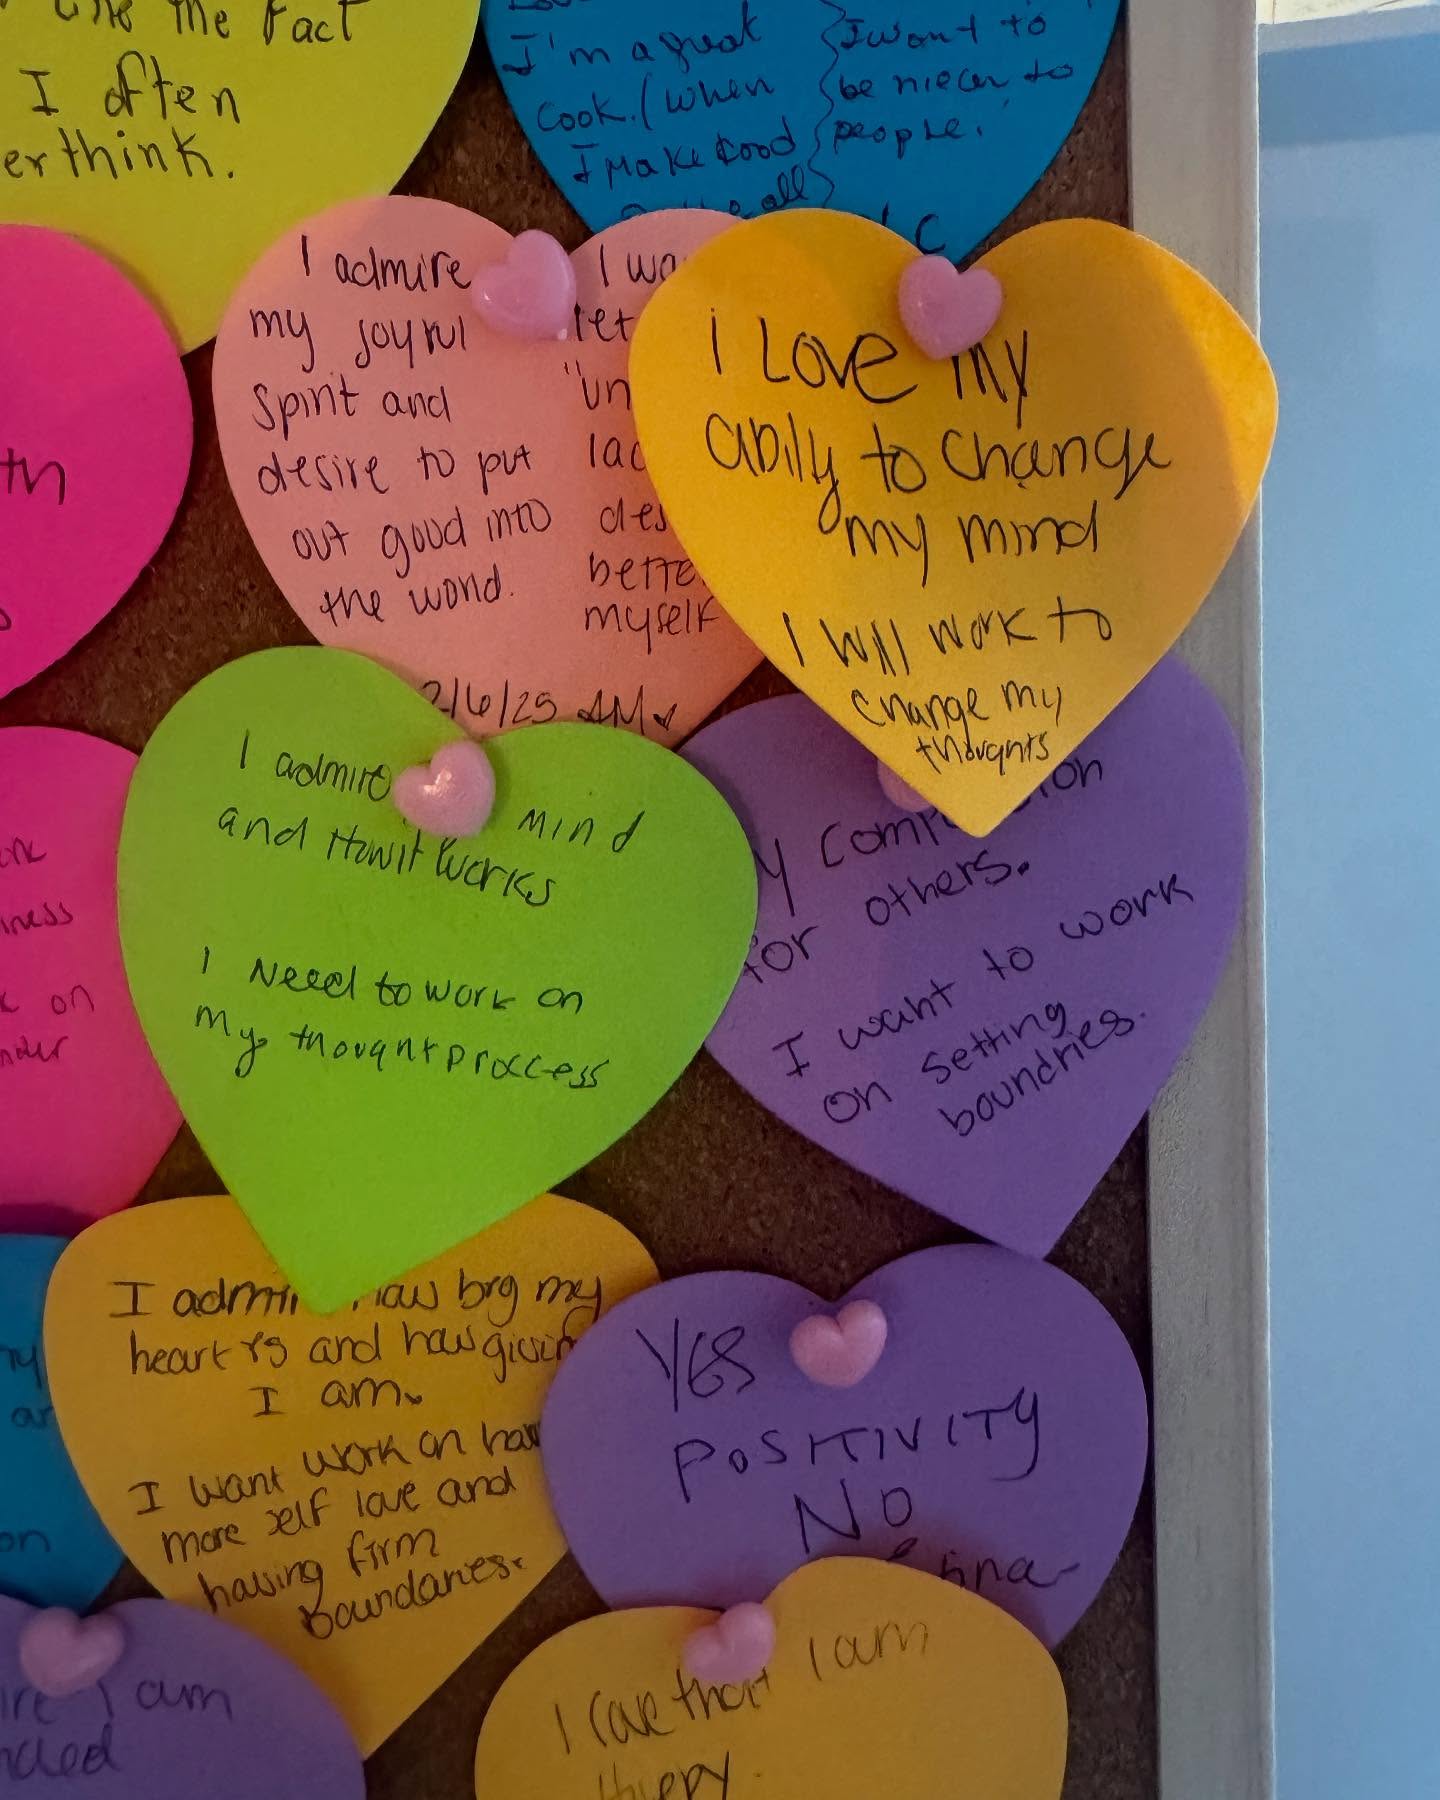 the Fact
I often
erthink.
I'm a great
cook. (when
I make food
all
I want to
be nicer to
people.
I admire
my joyful
spirit and
desire to put
out good into
the world.
I wa
let
"un
lac
des
bette
myself
2/6/25 AM
i Love my
abilly to change
my mind
I will work to
change my
thoughts
th
I admire
mind
and How it works
I Need to work on
my thought proccess
y comp
on
for others.
I want to work
on setting
boundries.
ness
on
I admir
how big my
heart is and how giving
I am.
I want work on hav
more self love and
having firm
boundaries.
on
YES
POSITIVITY
NO
I am
I love that I am